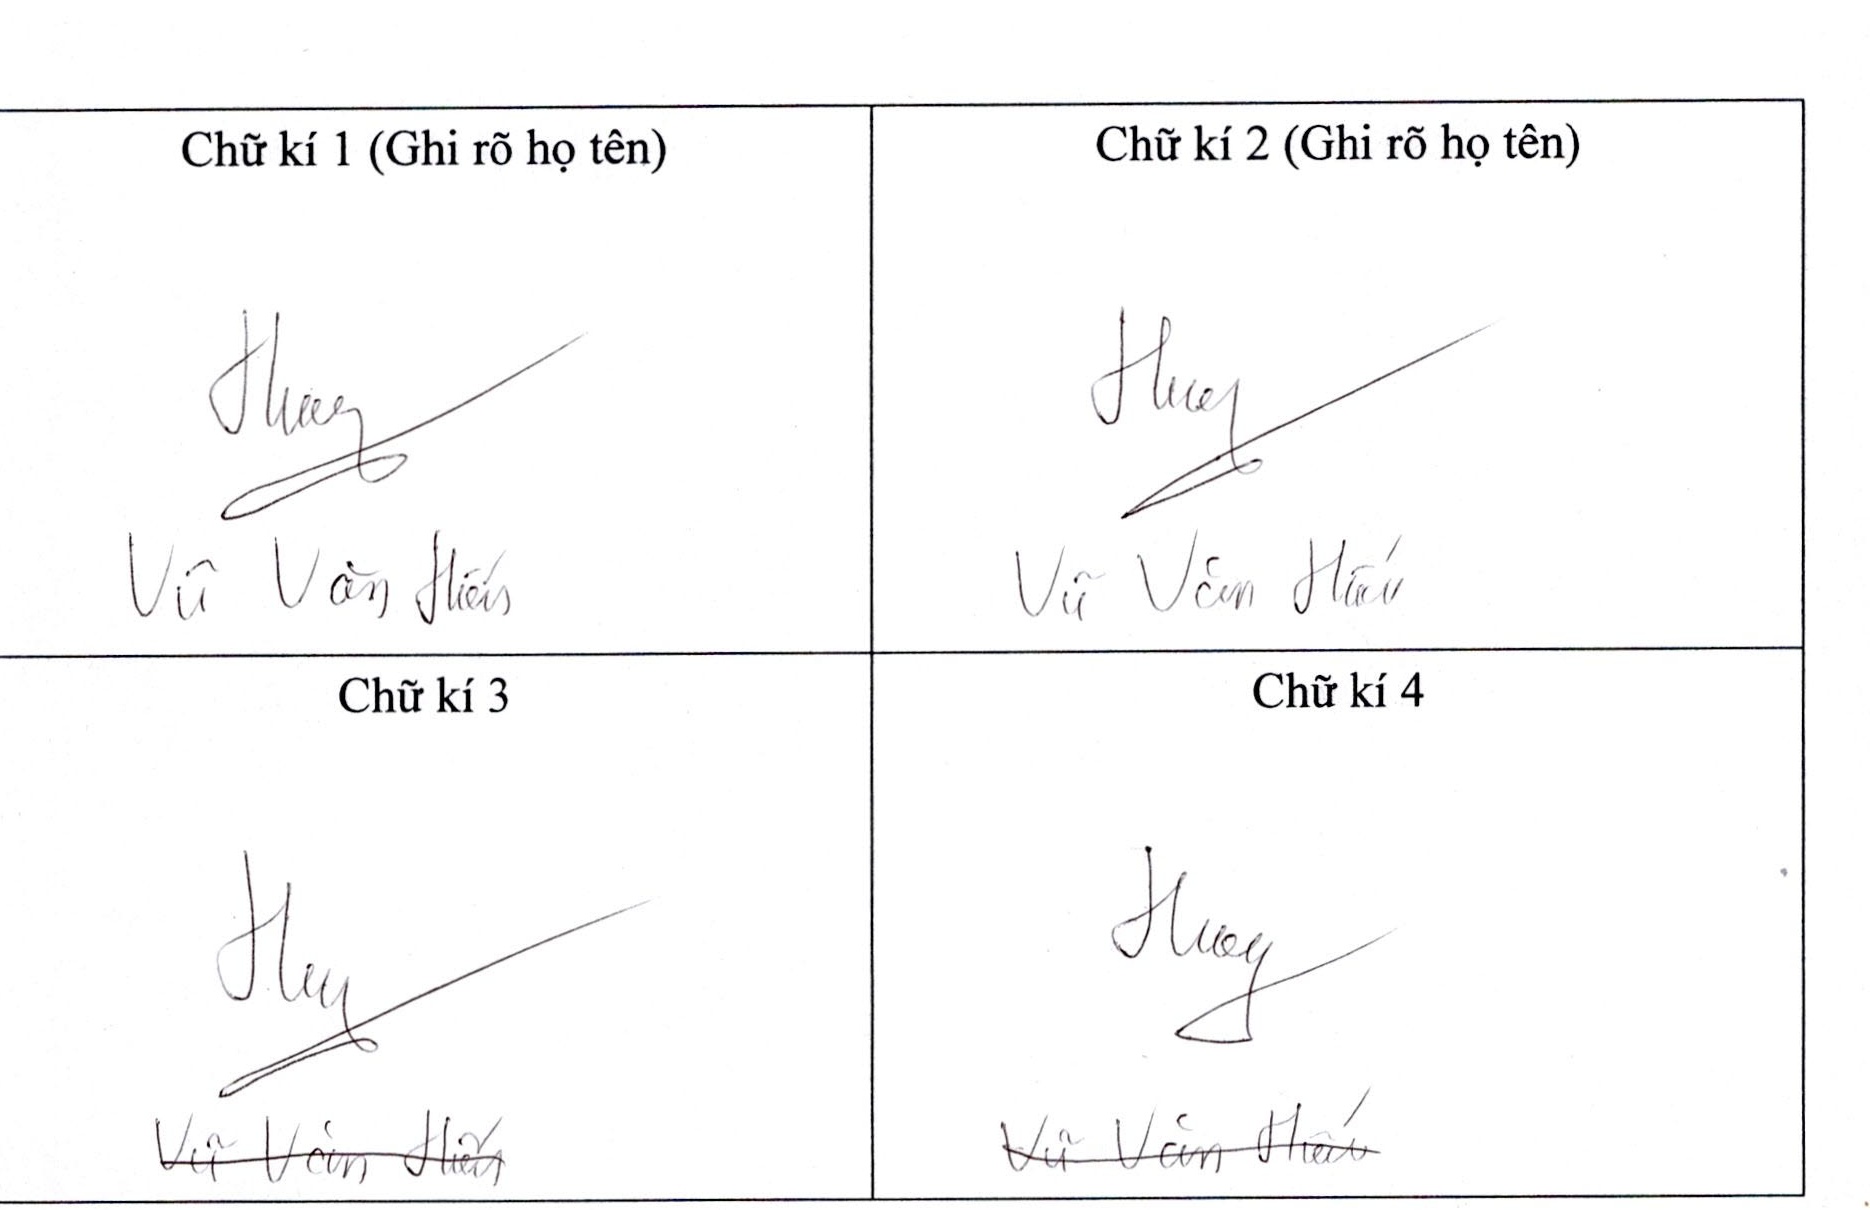 Chữ kí 1 (Ghi rõ họ tên)
Chữ kí 2 (Ghi rõ họ tên)
Vũ Văn Hiếu
Vũ Văn Hiếu
Chữ kí 3
Chữ kí 4
Vũ Văn Hiếu
Vũ Văn Hiếu